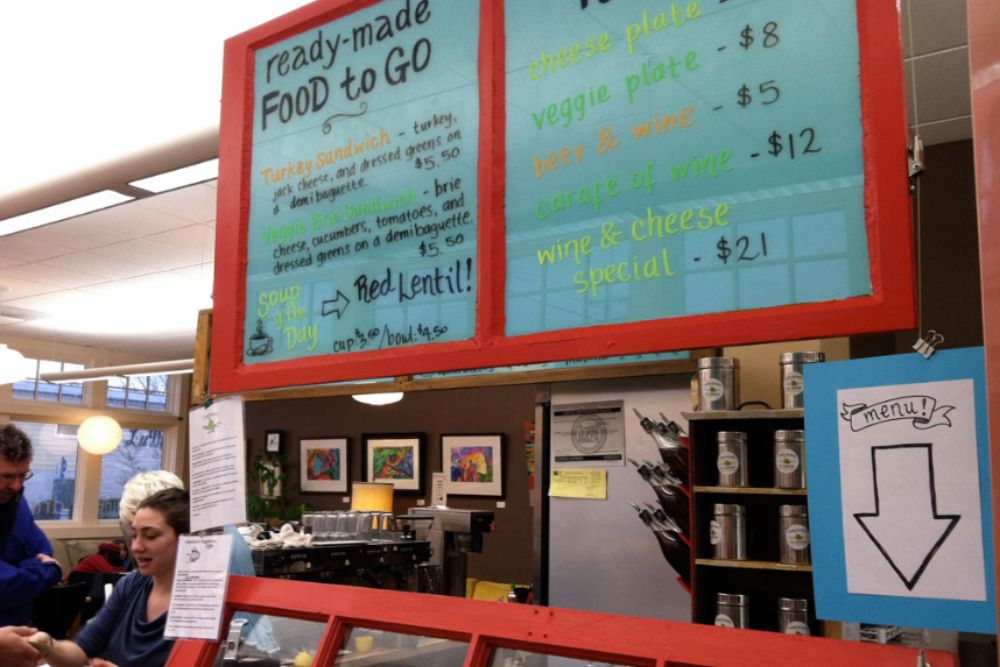 ready-made
FOOD to GO
Turkey Sandwich - turkey,
jack cheese, and dressed greens on
a demibaguette. $5.50
Veggie Brie Sandwich - brie
cheese, cucumbers, tomatoes, and
dressed greens on a demibaguette.
$5.50
Soup
of the
Day
Red Lentil!
cup: $3.50/bowl: $4.50
cheese plate -
veggie plate - $8
beer & wine - $5
carafe of wine - $12
wine & cheese
special - $21
menu!